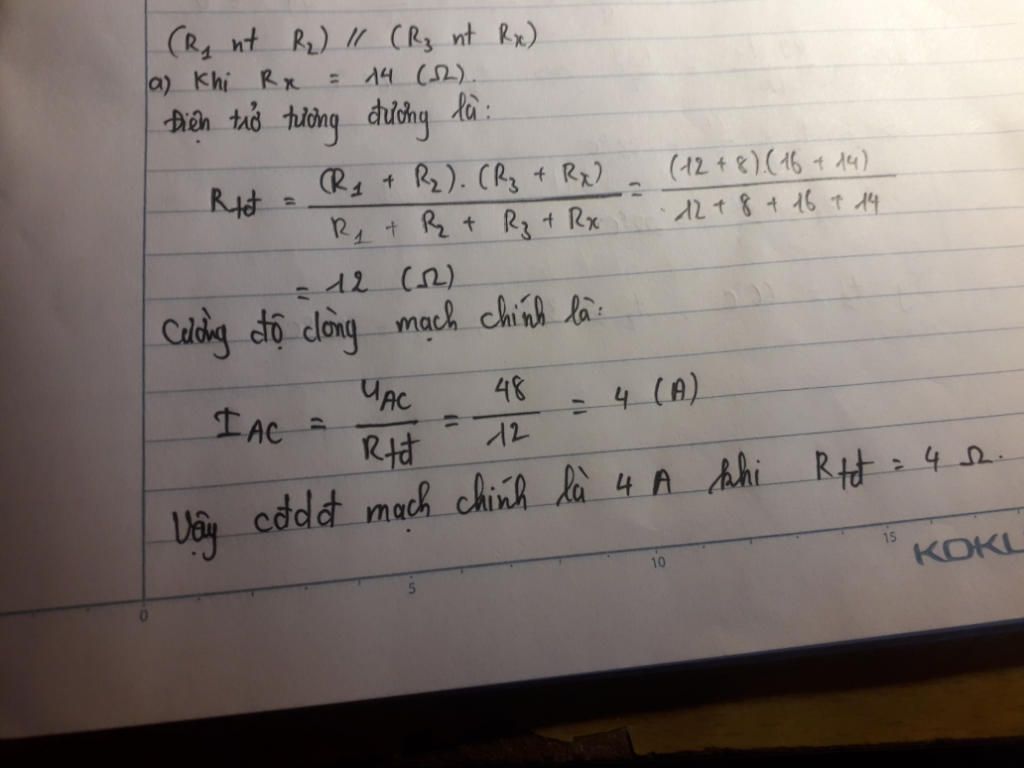 (R₁ nt R₂) // (R₃ nt Rx)
a) Khi Rx = 14 (Ω).
Điện trở tương đương là:
Rtđ = (R₁ + R₂).(R₃ + Rx) / R₁ + R₂ + R₃ + Rx = (12 + 8).(16 + 14) / 12 + 8 + 16 + 14
= 12 (Ω)
Cường độ dòng mạch chính là:
I AC = UAC / Rtđ = 48 / 12 = 4 (A)
Vậy cđdđ mạch chính là 4 A khi Rtđ = 4 Ω.
0 5 10 15